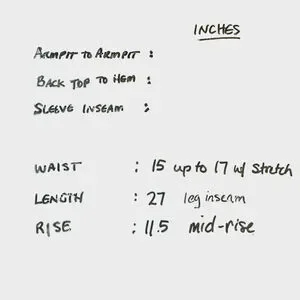 INCHES
ARMPIT TO ARMPIT :
BACK TOP TO HEM :
SLEEVE INSEAM :
WAIST : 15 up to 17 w/ stretch
LENGTH : 27 leg inseam
RISE : 11.5 mid-rise